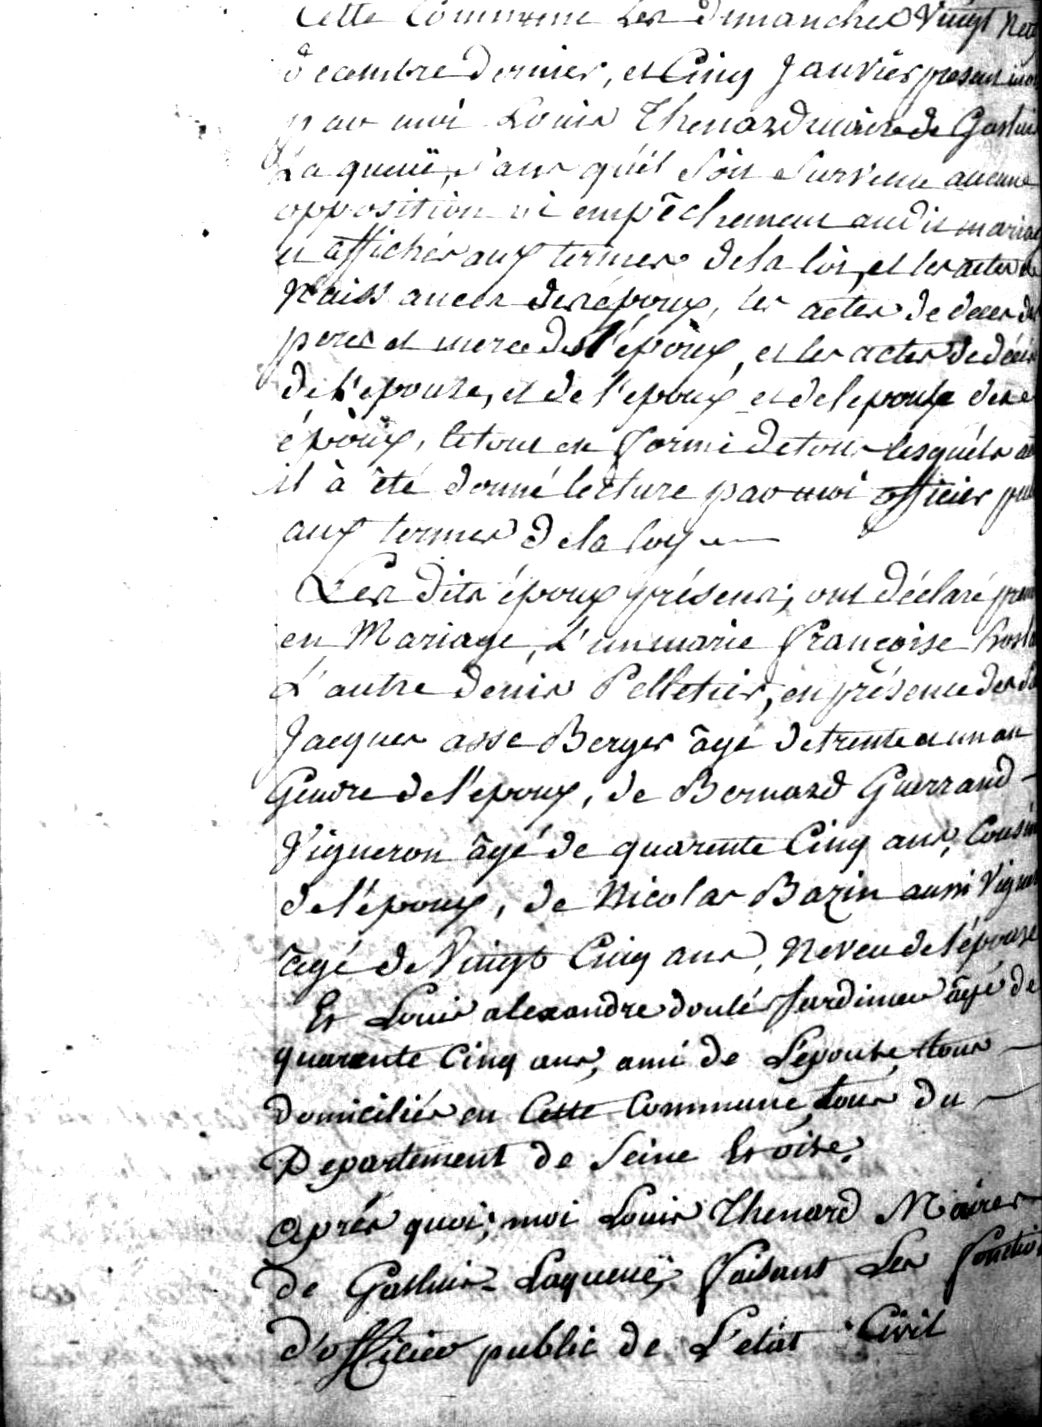 Cette Commune les dimanches Vingt neuf
decembre dernier, et Cinq Janvier présent mois
par moi Louis Thenard maire de Galluis
La queuë, sans qu'il soit survenu aucune
opposition ni empêchement audit mariage
et affichés aux termes de la loi, et les actes de
Naissances des époux, les actes de deces des
peres et meres de l'époux, et les actes de décès
de l'epouse, et de l'epoux et de l'epouse des
époux, le tout en forme de tous lesquels actes
il à été donné lecture par moi officier public
aux termes de la loy
Les dits époux présens, ont déclaré prendre
en Mariage, L'un marie françoise
L'autre denis Pelletier, en présence des
Jacques asse Berger âgé de trente et un an
Gendre de l'époux, de Bernard Guerrand
Vigneron âgé de quarente Cinq ans, Cousin
de l'époux, de Nicolas Bazin aussi Vigneron
âgé de Vingt Cinq ans, Neveu de l'épouse
Et Louis alexandre doulé Jardinier âgé de
quarente Cinq ans, ami de L'epouse, tous
domiciliés en Cette Commune, tous du
Departement de Seine Et oise.
après quoi, moi Louis Thenard Maire
de Galluis Laqueuë, faisant Les fonctions
d'officier public de L'etat Civil